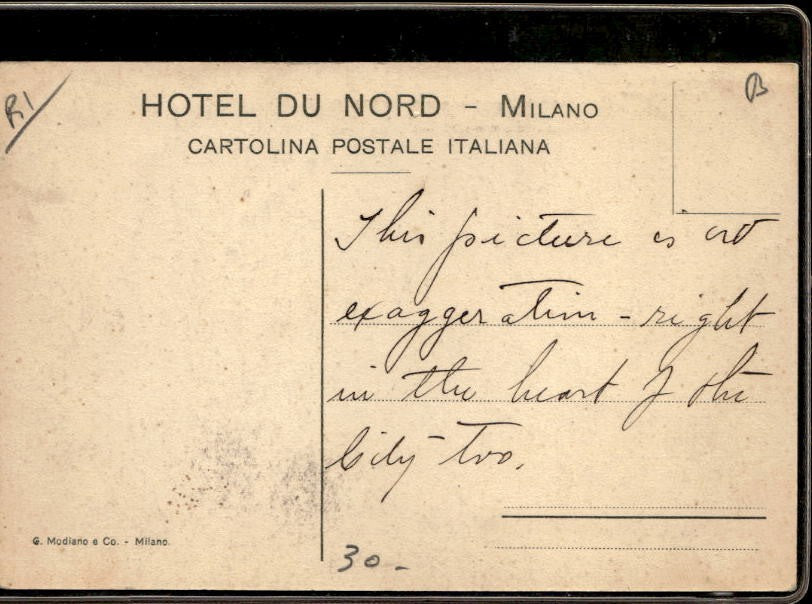 R1/
B
HOTEL DU NORD - MILANO
CARTOLINA POSTALE ITALIANA
This picture is not
exaggeration - right
in the heart of the
City too.
G. Modiano e Co. - Milano.
30-